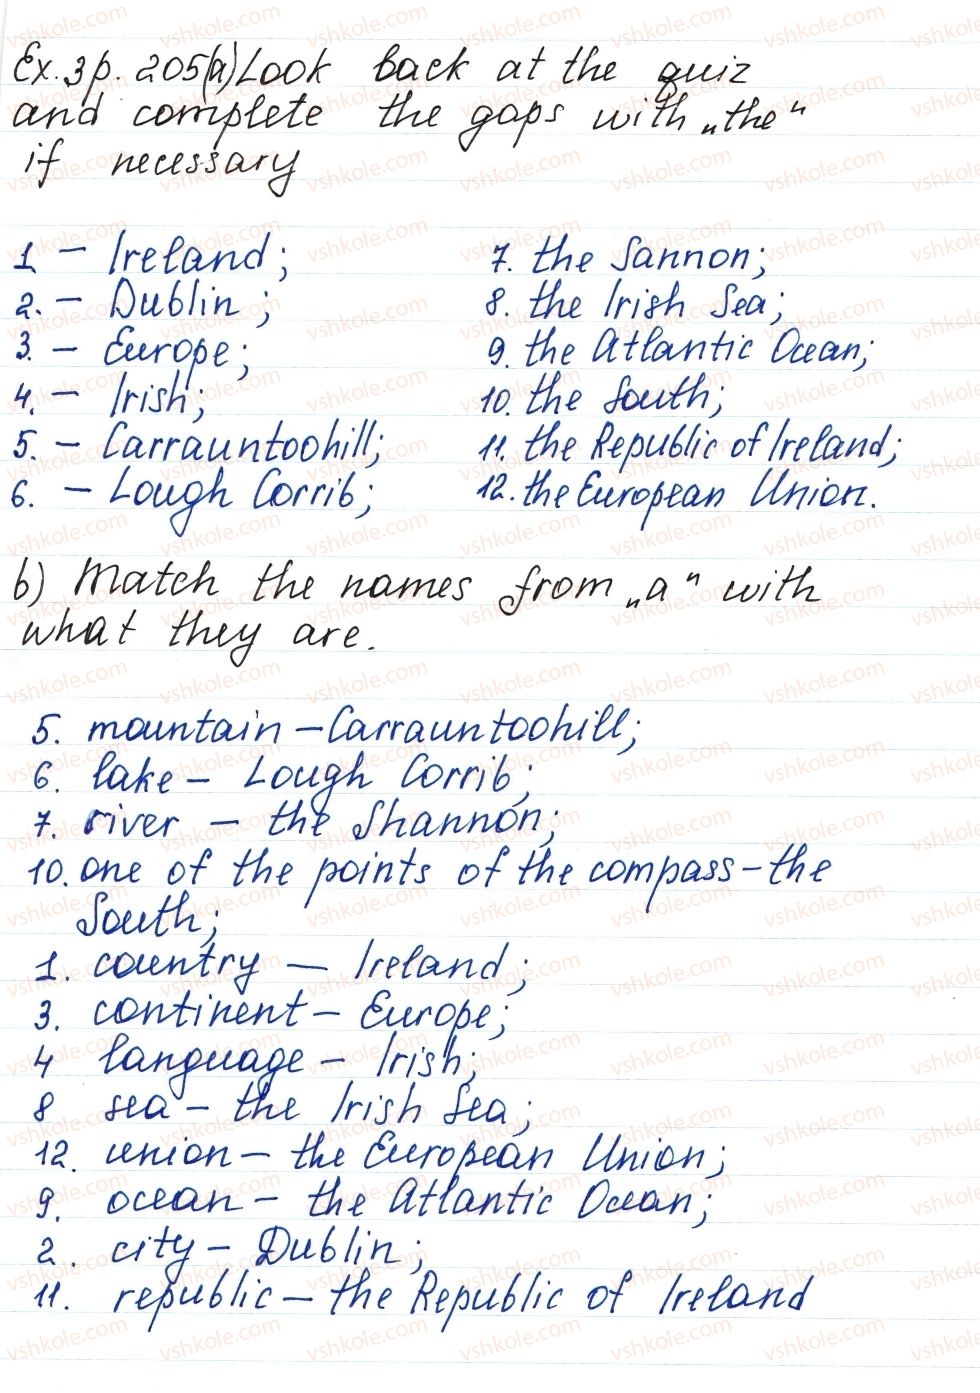 Ex. 3 p. 205(a) Look back at the quiz
and complete the gaps with „the"
if necessary
1 – Ireland;
2. – Dublin;
3. – Europe;
4. – Irish;
5. – Carrauntoohill;
6. – Lough Corrib;
7. the Sannon;
8. the Irish Sea;
9. the Atlantic Ocean;
10. the South;
11. the Republic of Ireland;
12. the European Union.
b) Match the names from „a" with
what they are.
5. mountain – Carrauntoohill;
6. lake – Lough Corrib;
7. river – the Shannon;
10. one of the points of the compass – the
South;
1. country – Ireland;
3. continent – Europe;
4 language – Irish;
8 sea – the Irish Sea;
12. union – the European Union;
9. ocean – the Atlantic Ocean;
2. city – Dublin;
11. republic – the Republic of Ireland